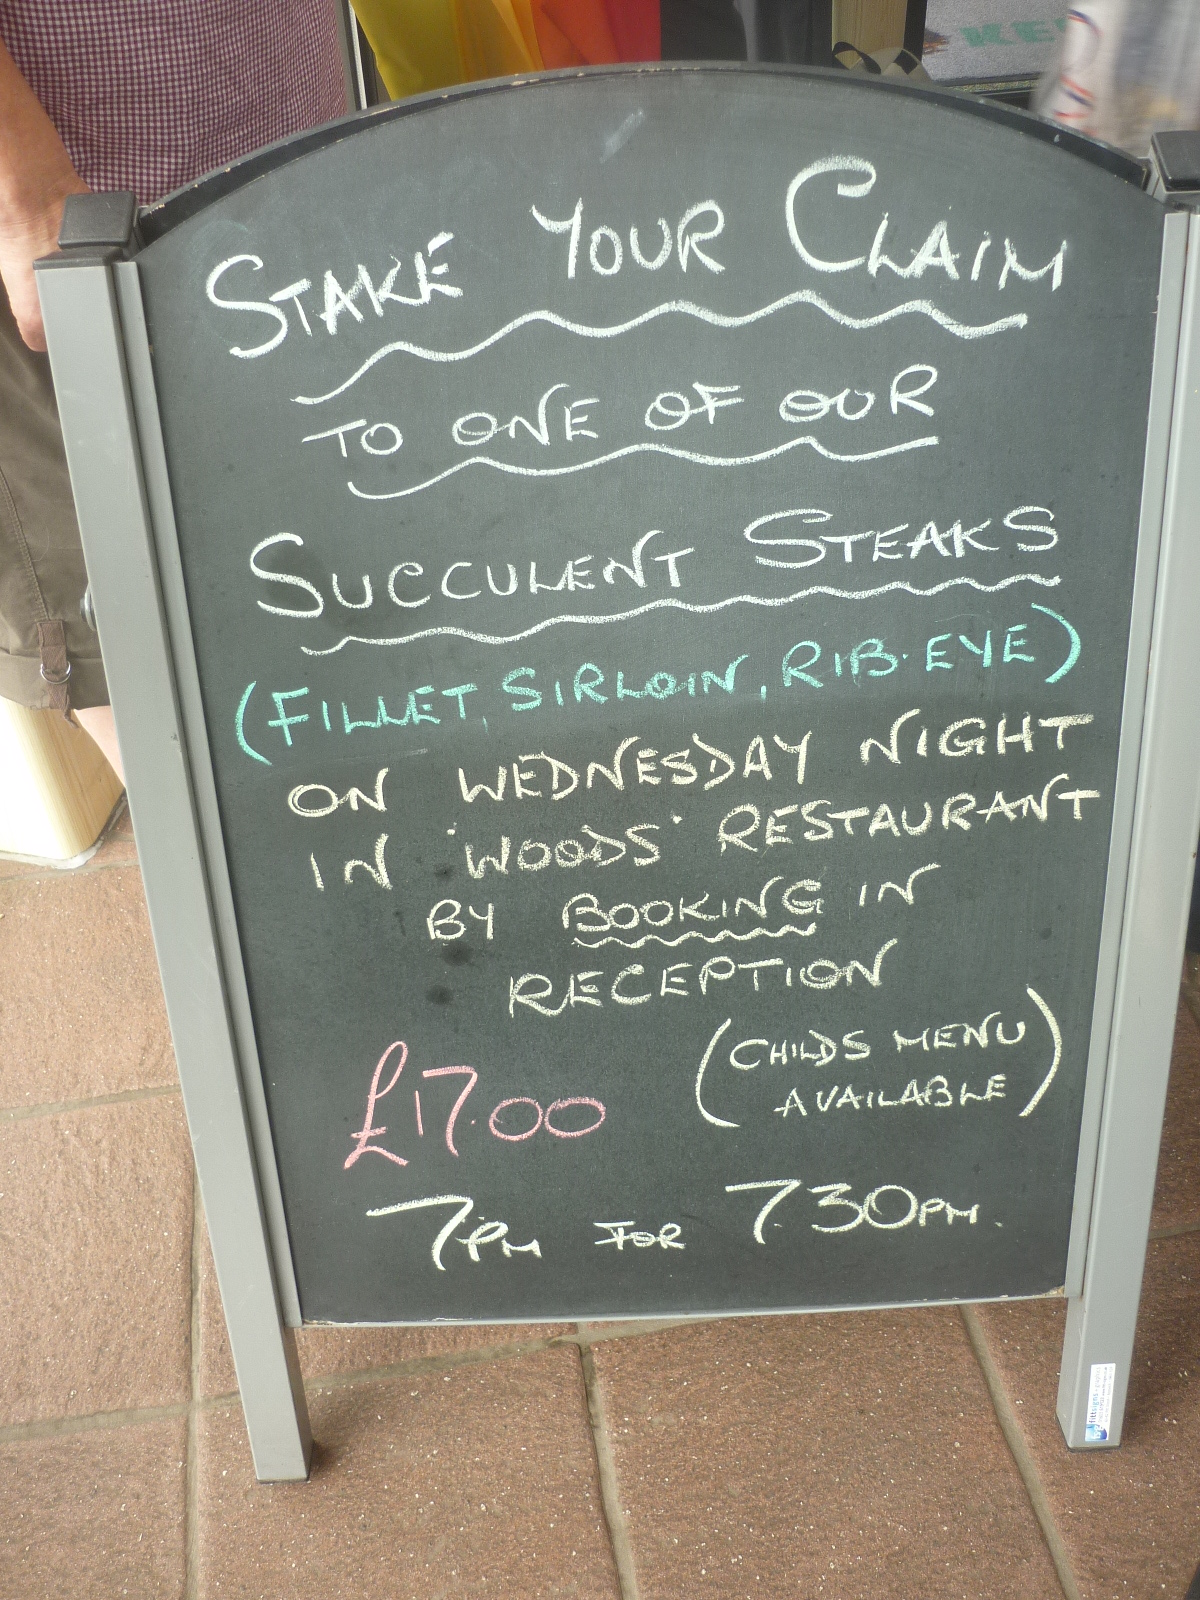 STAKE YOUR CLAIM
TO ONE OF OUR
SUCCULENT STEAKS
(FILLET, SIRLOIN, RIB·EYE)
ON WEDNESDAY NIGHT
IN 'WOODS' RESTAURANT
BY BOOKING IN
RECEPTION
(CHILDS MENU
AVAILABLE)
£17.00
7PM FOR 7.30PM.